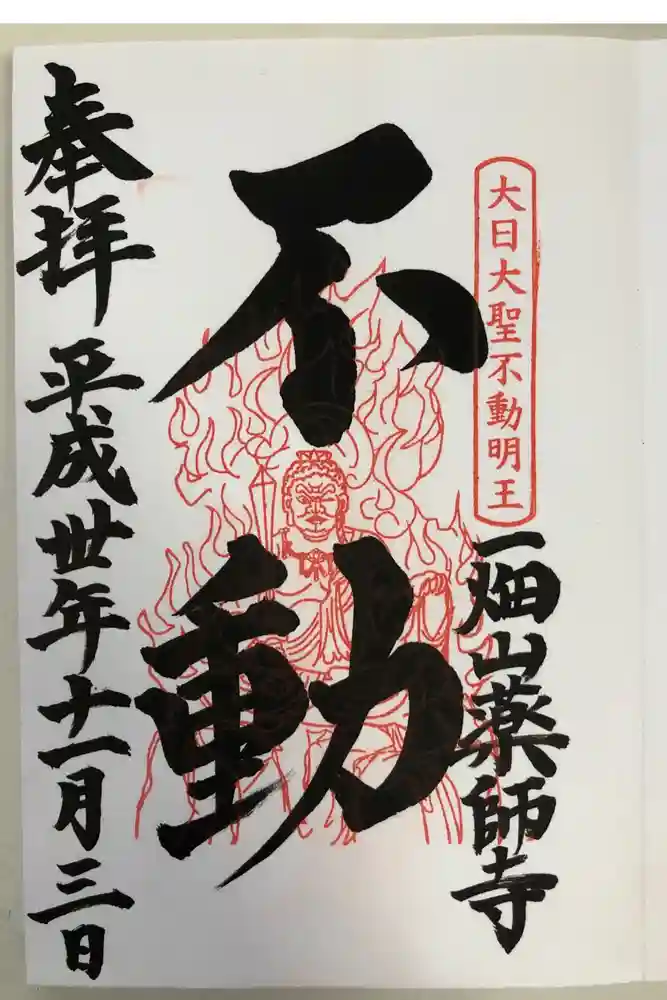 大日大聖不動明王
一畑山薬師寺
不動
奉拝 平成卅年十一月三日